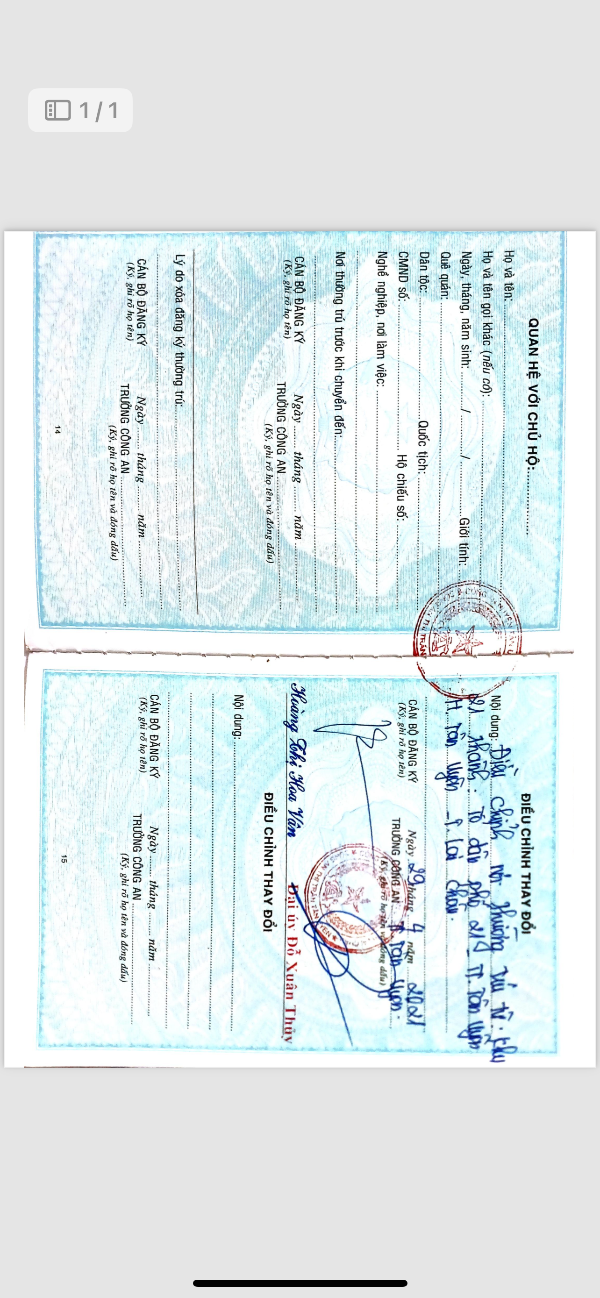 1/1
QUAN HỆ VỚI CHỦ HỘ:
Họ và tên:
Họ và tên gọi khác (nếu có):
Ngày, tháng, năm sinh: / / Giới tính:
Quê quán:
Dân tộc: Quốc tịch:
CMND số: Hộ chiếu số:
Nghề nghiệp, nơi làm việc:
Nơi thường trú trước khi chuyển đến:
Ngày ...... tháng ...... năm
CÁN BỘ ĐĂNG KÝ TRƯỞNG CÔNG AN
(Ký, ghi rõ họ tên) (Ký, ghi rõ họ tên và đóng dấu)
Lý do xóa đăng ký thường trú:
Ngày ...... tháng ...... năm
CÁN BỘ ĐĂNG KÝ TRƯỞNG CÔNG AN
(Ký, ghi rõ họ tên) (Ký, ghi rõ họ tên và đóng dấu)
14
ĐIỀU CHỈNH THAY ĐỔI
Nội dung: Điều chỉnh nơi thường trú từ: khu
21 thành: tổ dân phố 21 - TT. Tân Uyên
H. Tân Uyên - T. Lai Châu.
Ngày 29 tháng 4 năm 2021
CÁN BỘ ĐĂNG KÝ TRƯỞNG CÔNG AN TT. Tân Uyên.
(Ký, ghi rõ họ tên) (Ký, ghi rõ họ tên và đóng dấu)
Hoàng Thị Hoa Vân Đại úy Đỗ Xuân Thủy
ĐIỀU CHỈNH THAY ĐỔI
Nội dung:
Ngày ...... tháng ...... năm
CÁN BỘ ĐĂNG KÝ TRƯỞNG CÔNG AN
(Ký, ghi rõ họ tên) (Ký, ghi rõ họ tên và đóng dấu)
15